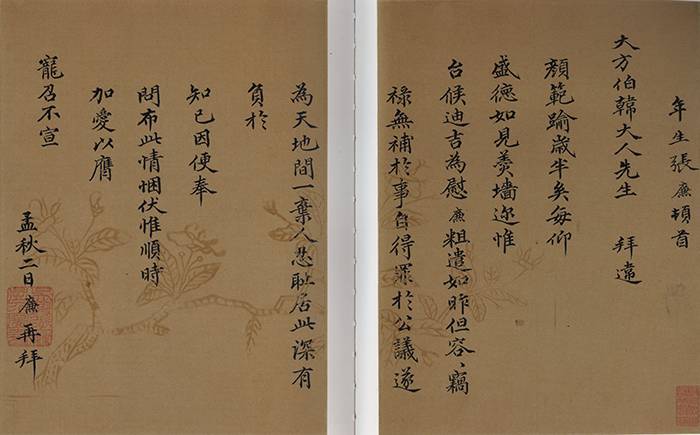 年生張㢘頓首
大方伯韓大人先生 拜遠
顏範踰歲半矣每仰
盛德如見羹墻邇惟
台候迪吉為慰㢘粗遣如昨但容〻竊
祿無補於事自得罪於公議遂
為天地間一棄人忍耻居此深有
負於
知己因便奉
問布此情悃伏惟順時
加愛以膺
寵召不宣
孟秋二日㢘再拜